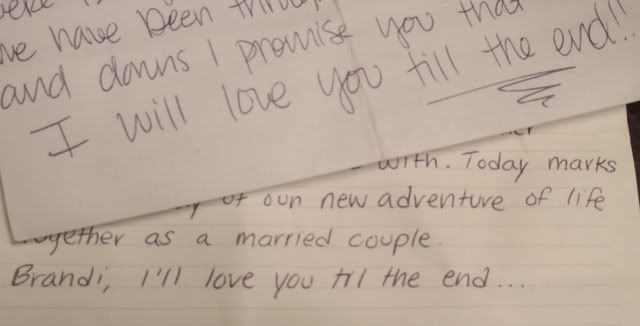 we have been through
and downs I promise you that
I will love you till the end!!
with. Today marks
of our new adventure of life
together as a married couple.
Brandi, I'll love you til the end...